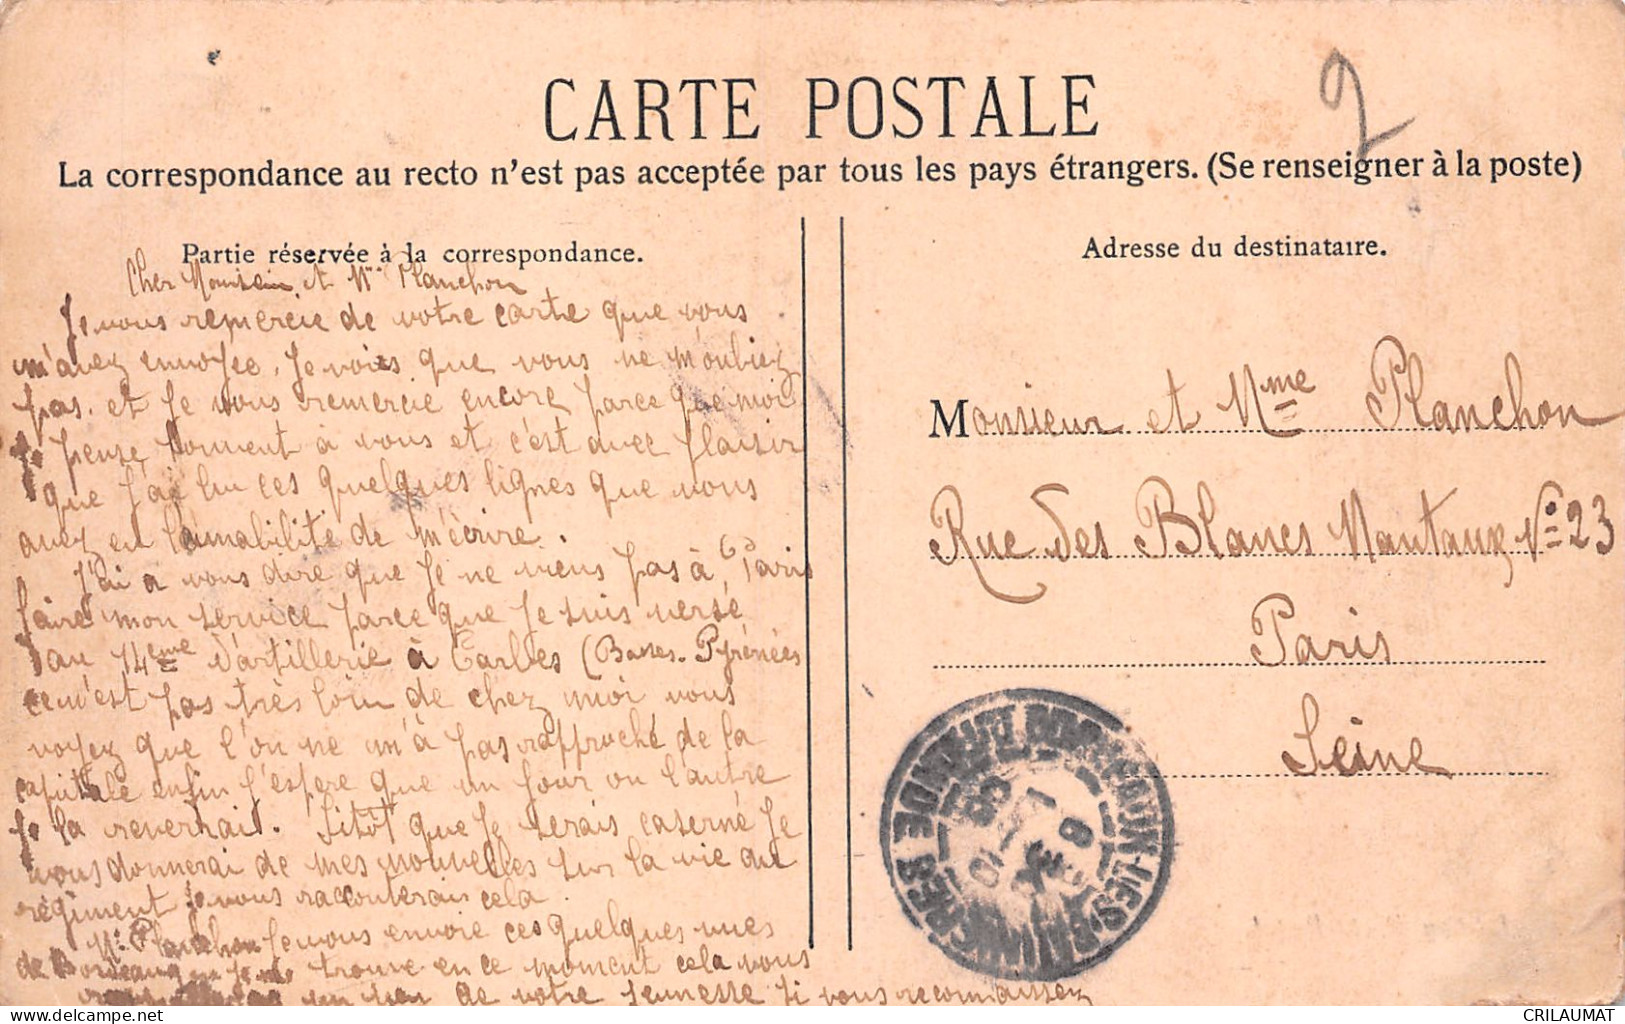 2
CARTE POSTALE
La correspondance au recto n'est pas acceptée par tous les pays étrangers. (Se renseigner à la poste)
Partie réservée à la correspondance.
Cher Monsieur et Mme Planchon
Je vous remercie de votre carte que vous
m'avez envoyée, Je vois que vous ne m'oubiez
pas. et Je vous remercie encore parce que moi
Je pense souvent à vous et c'est avec plaisir
que j'ai lu ces quelques lignes que vous
avez eu l'amabilité de m'écrire.
J'ai a vous dire que Je ne viens pas à Paris
faire mon service parce que Je suis versé
au 14eme d'artillerie à Tarbes (Basses-Pyrénées
ce n'est pas très loin de chez moi vous
voyez que l'on ne m'à pas rapproché de la
capitale enfin j'espere que un jour ou l'autre
Je la reverrai. Sitôt que Je serais caserné Je
vous donnerai de mes nouvelles sur la vie au
régiment Je vous racconterais cela.
Mr Planchon Je vous envoie ces quelques vues
de Bordeaux Je me trouve en ce moment cela vous
un peu de votre Jeunesse si vous reconnaissez
Adresse du destinataire.
Monsieur et Mme Planchon
Rue des Blancs Mantaux No 23
Paris
Seine
CRILAUMAT